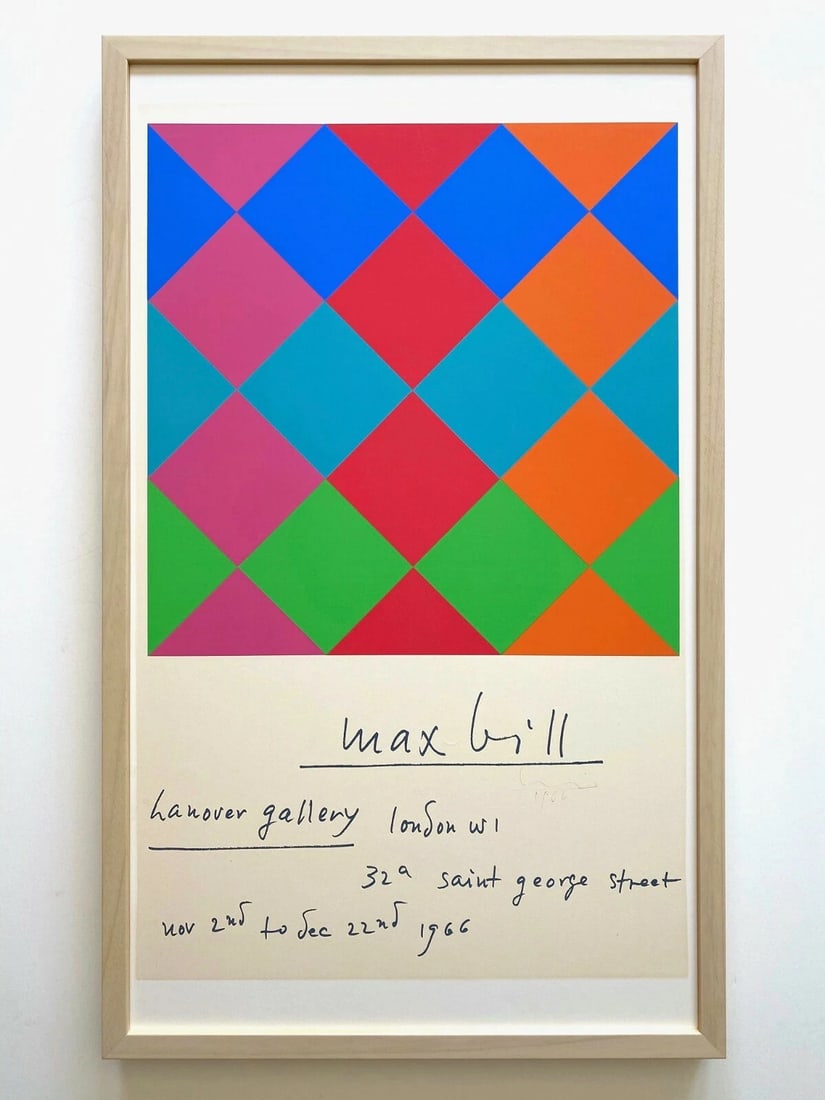 max bill
hanover gallery london w1
32a saint george street
nov 2nd to dec 22nd 1966